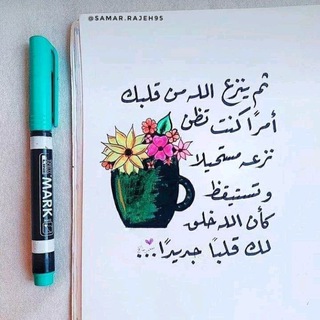 @SAMAR.RAJEH95
ثم ينزع الله من قلبك
أمرًا كنت تظن
نزعه مستحيلا
و تستيقظ
كأن الله خلق
لك قلبًا جديدًا...
MARK